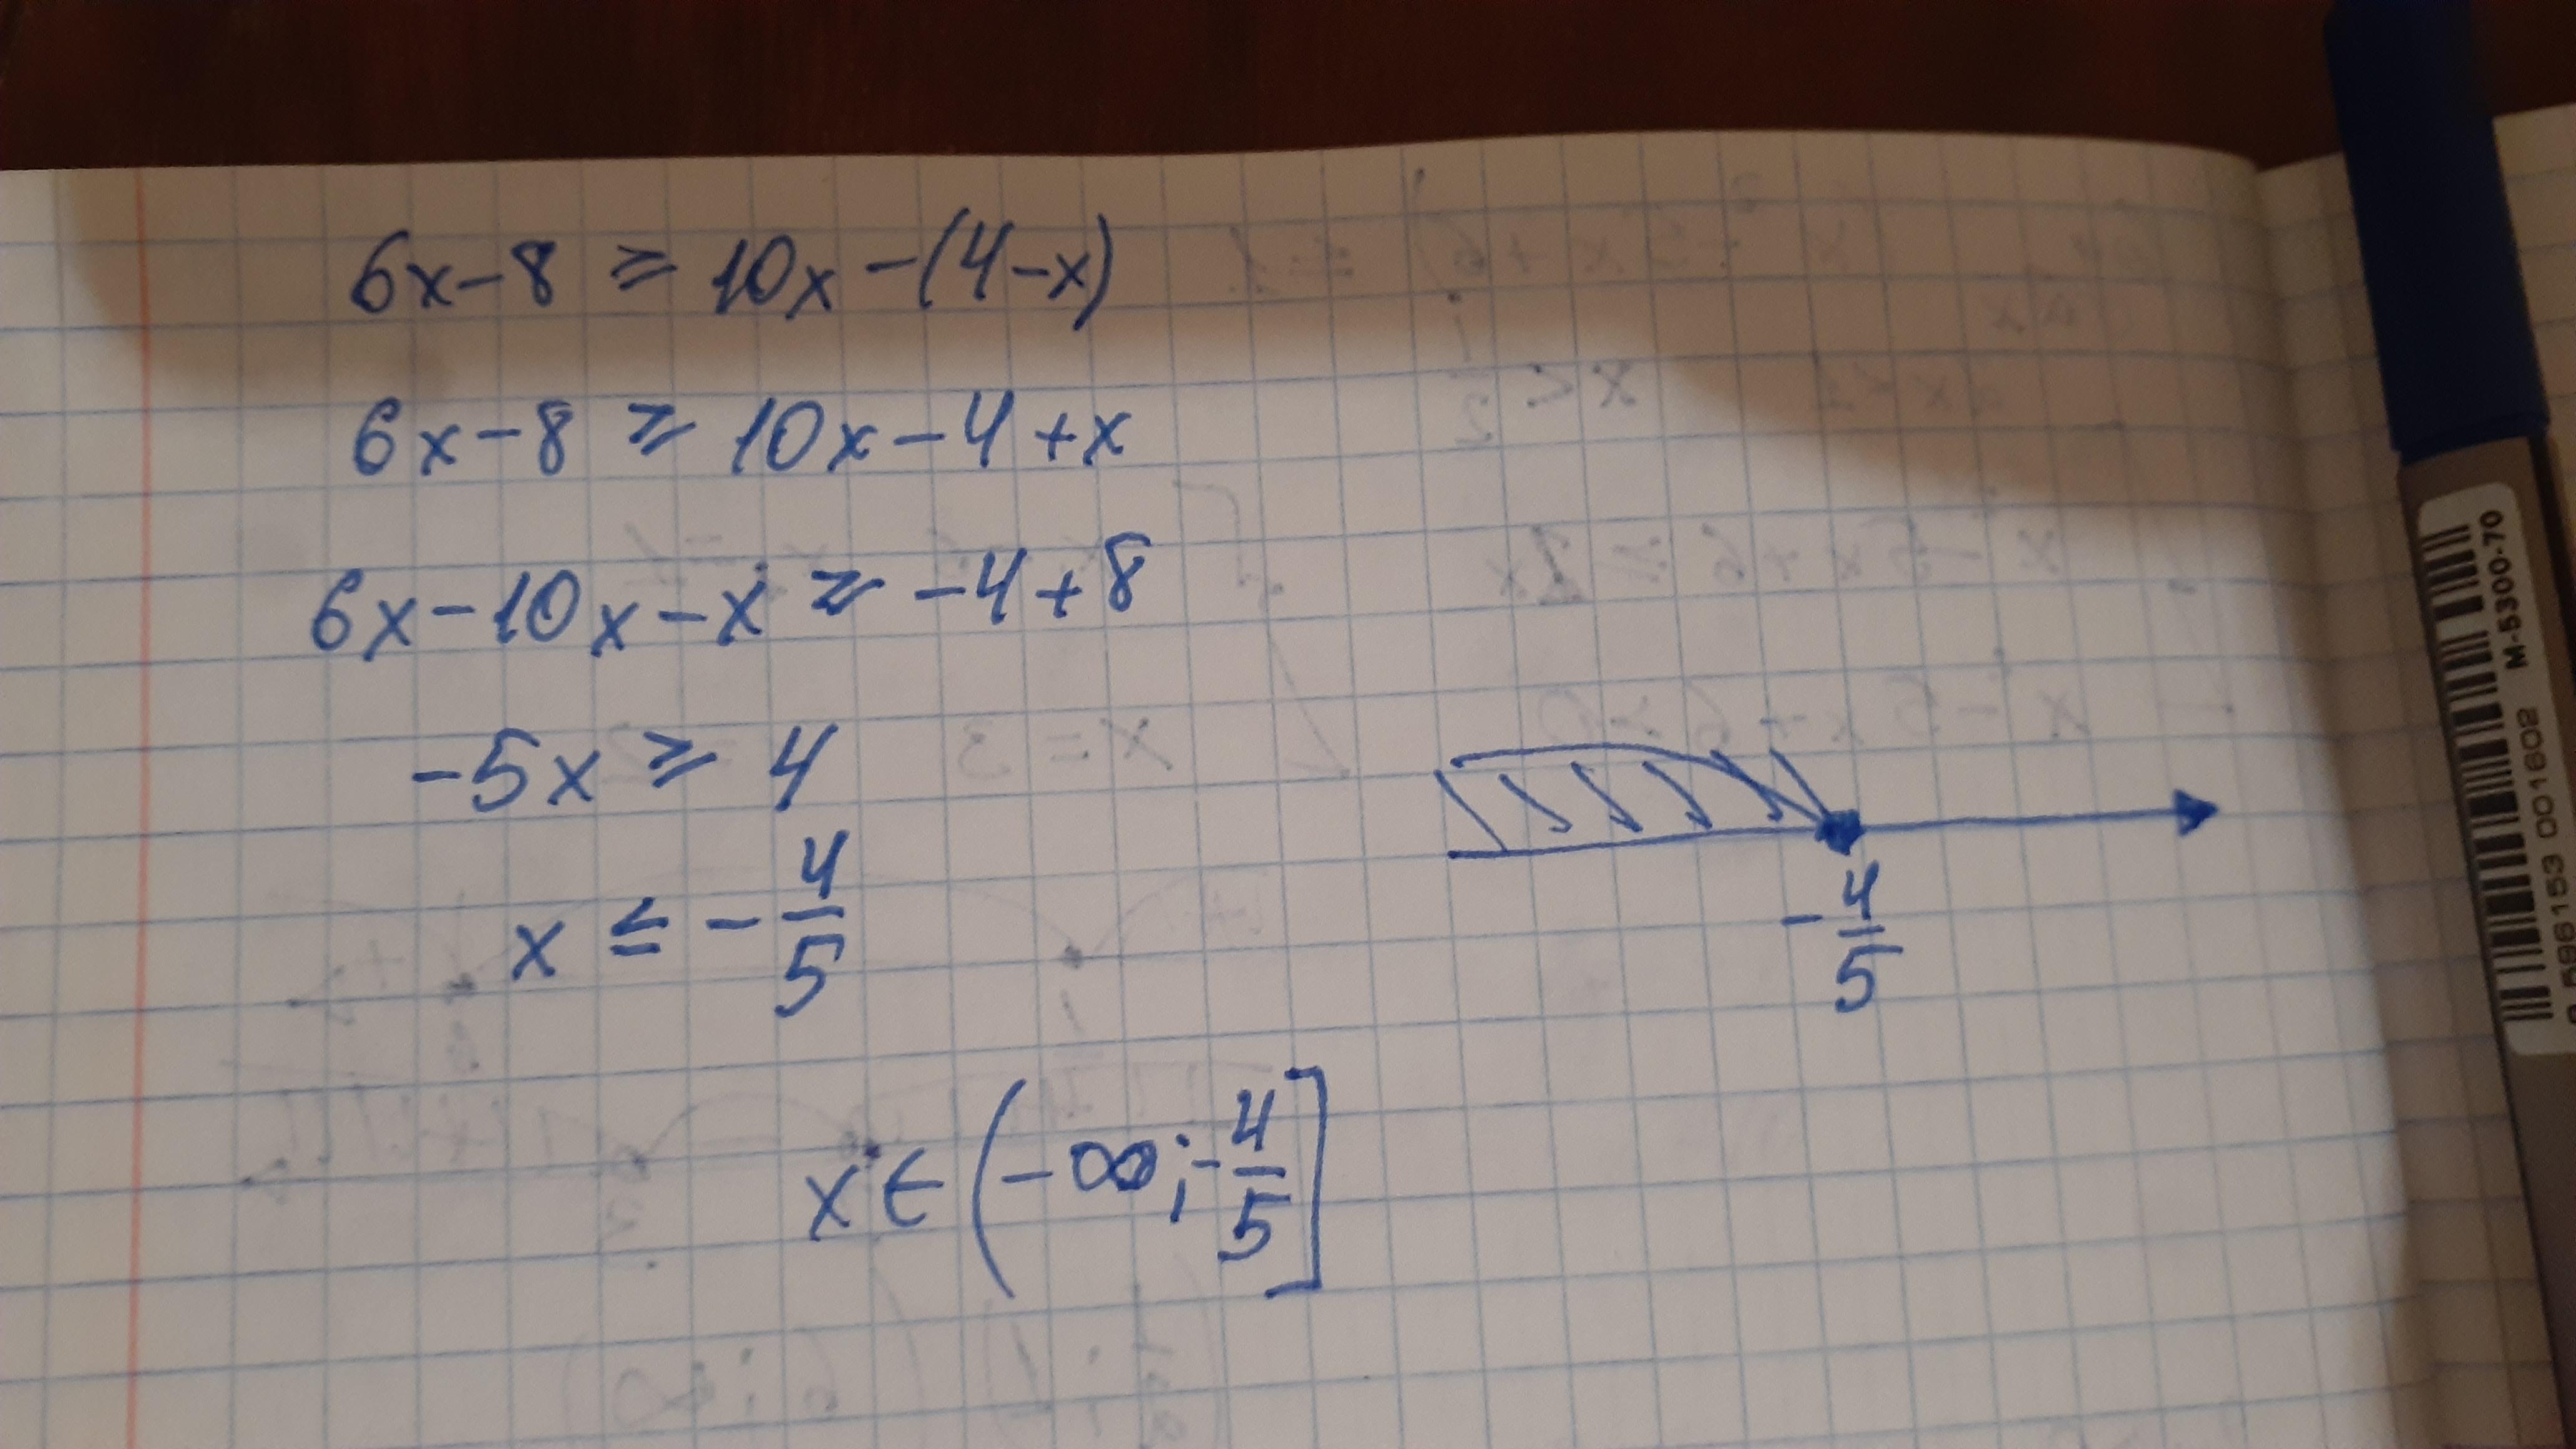 6x-8 ≥ 10x-(4-x)
6x-8 ≥ 10x-4+x
6x-10x-x ≥ -4+8
-5x ≥ 4
x ≤ -4/5
-4/5
x∈(-∞;-4/5]
M-5300-70
001602